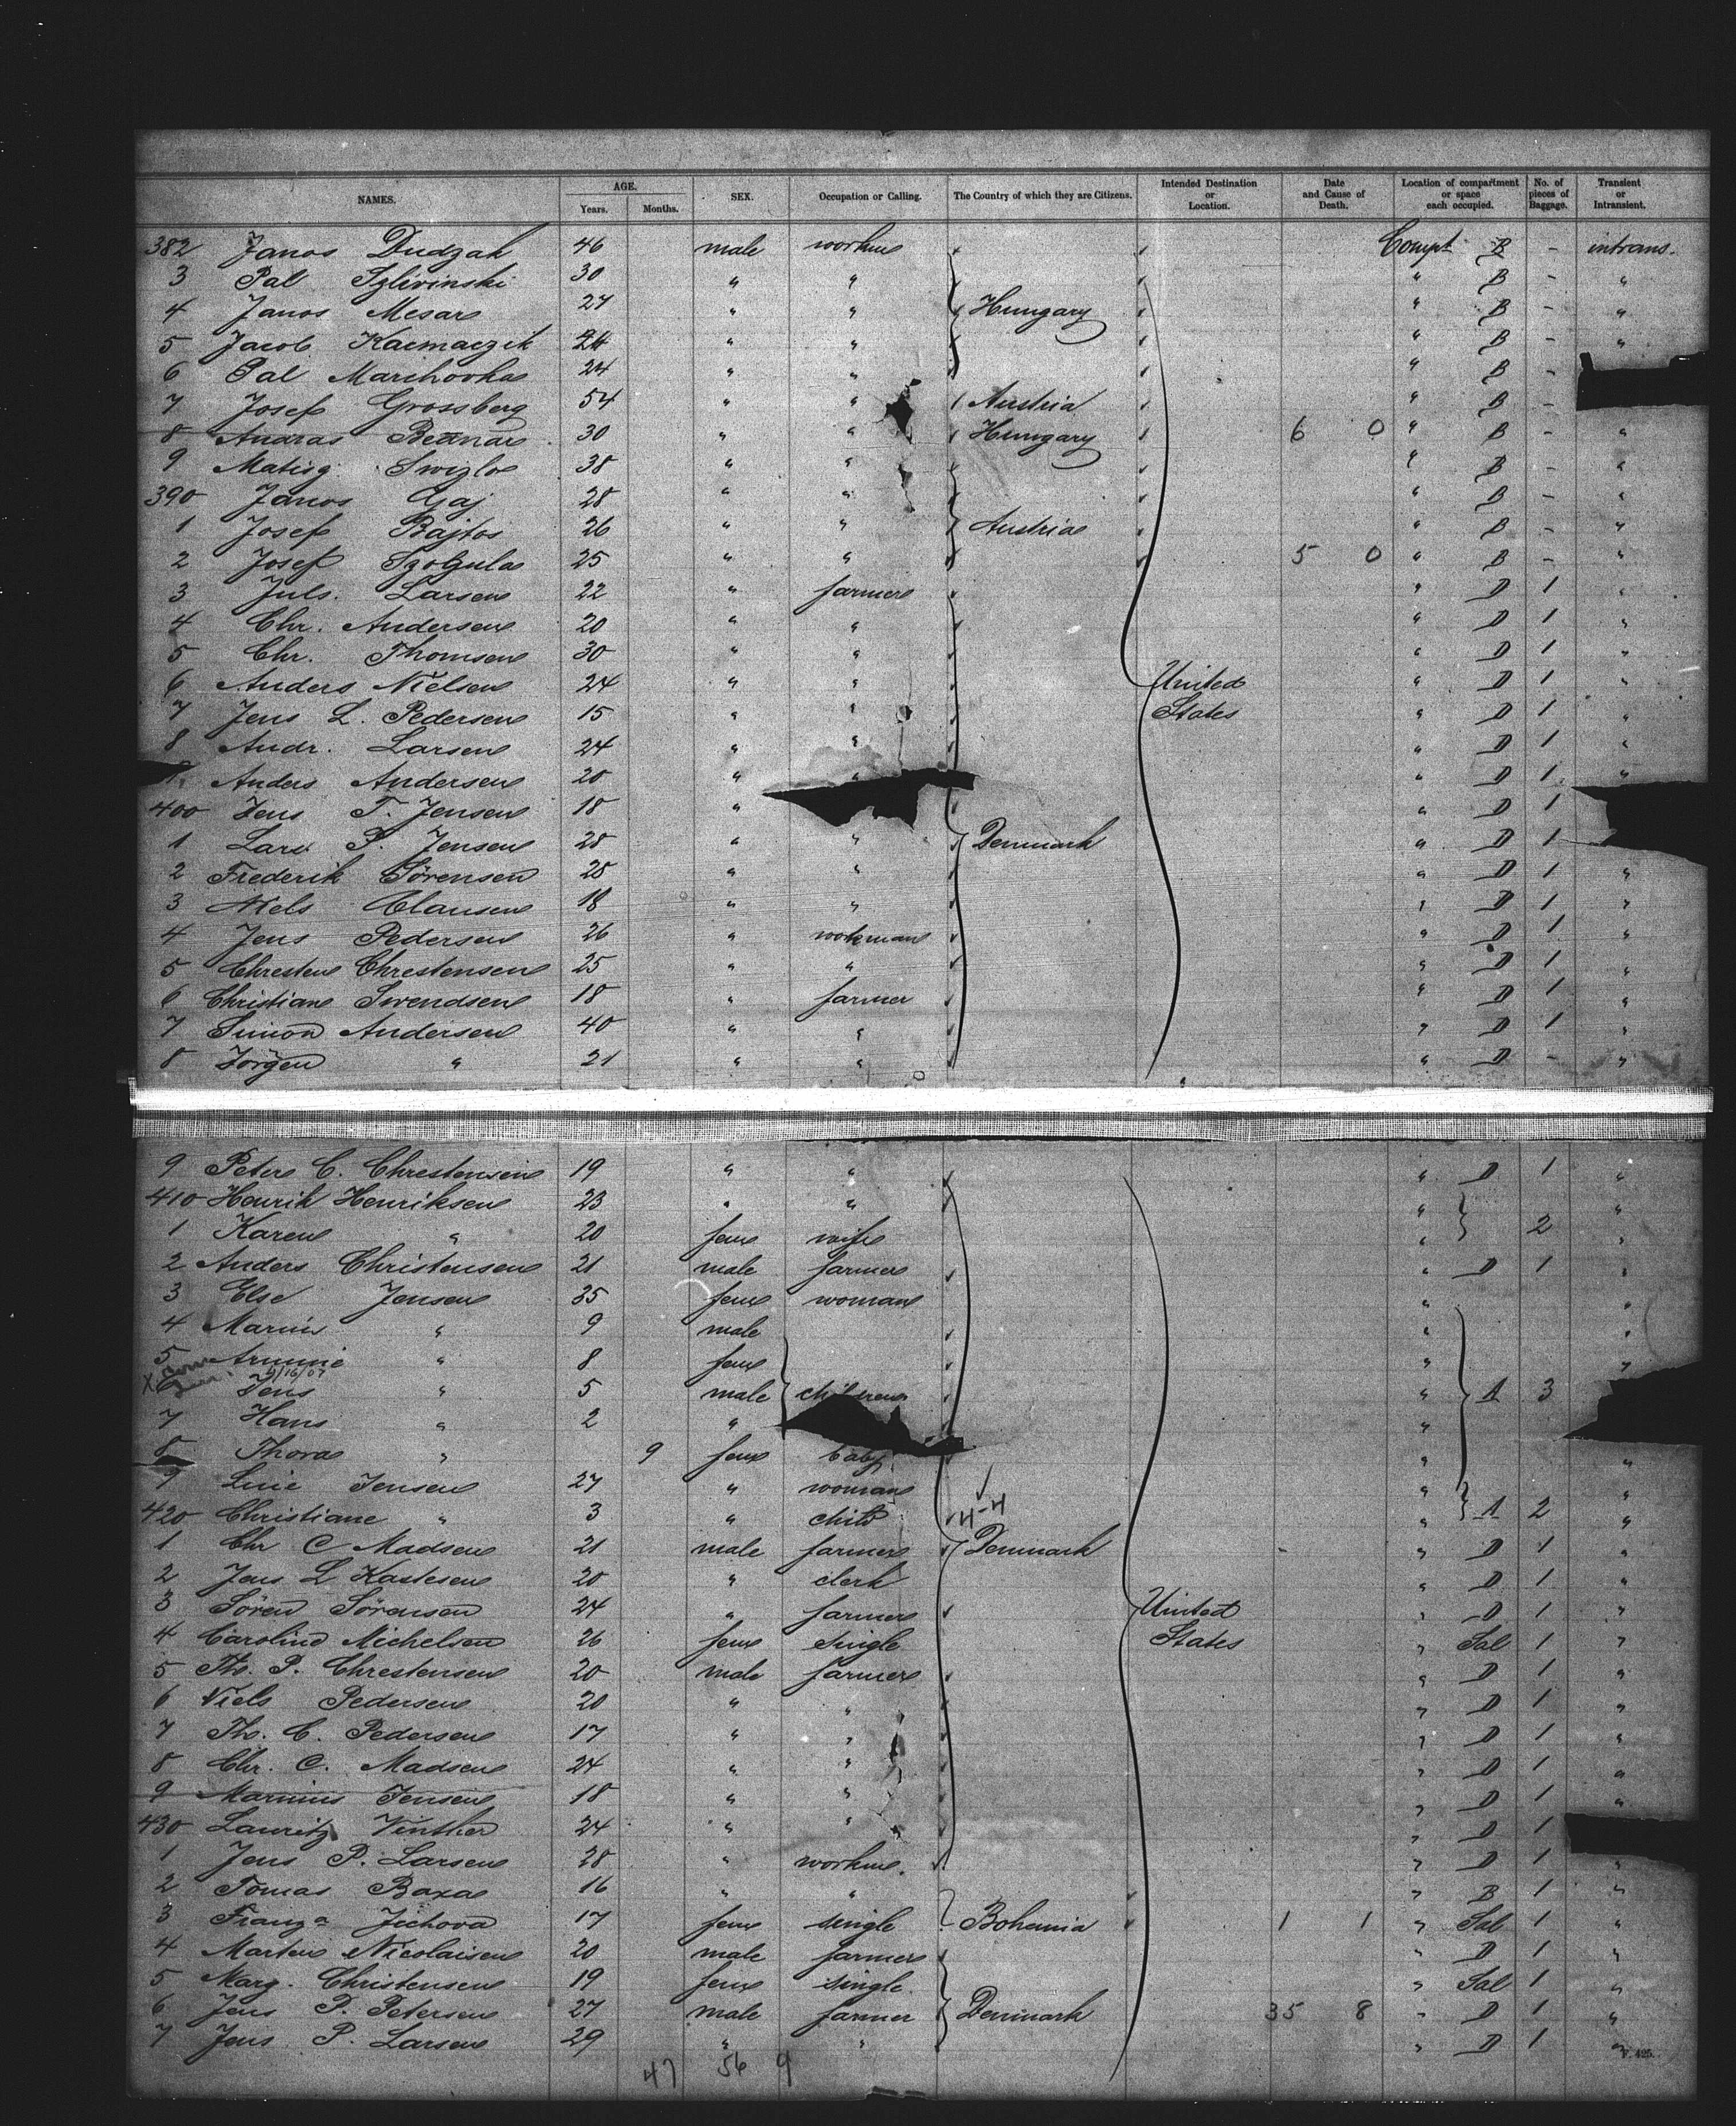 NAMES. AGE. Years. Months. SEX. Occupation or Calling. The Country of which they are Citizens. Intended Destination or Location. Date and Cause of Death. Location of compartment or space each occupied. No. of pieces of Baggage. Transient or Intransient.
382 Janos Dudzak 46 male workm Compt B - intrans.
3 Pal Szlivinski 30 " " " B - "
4 Janos Mesar 27 " " Hungary " B - "
5 Jacob Kacmarzik " " " B - "
6 Pal Marihovka 24 " " " B -
7 Josef Grossberg 54 " " Austria " B -
8 Andras Bednar 30 " " Hungary 6 0 " B - "
9 Matisz 38 " " " B - "
390 Janos Gaj 28 " " " B - "
1 Josef Bajtos 26 " " Austria " B - "
2 Josef 25 " " 5 0 " B - "
3 Juls. Larsen 22 " farmer " D 1 "
4 Chr. Andersen 20 " " " D 1 "
5 Chr. Thomsen 30 " " " D 1 "
6 Anders Nielsen 24 " " United " D 1 "
7 Jens L. Pedersen 15 " " States " D 1 "
8 Andr. Larsen 24 " " " D 1 "
Anders Andersen 20 " " " D 1 "
400 Jens T. Jensen 18 " " D 1
1 Lars P. Jensen 28 " " Denmark " D 1
2 Frederik Sörensen 28 " " " D 1 "
3 Niels Clausen 18 " " " D 1 "
4 Jens Pedersen 26 " workman " D 1 "
5 Chresten Chrestensen 25 " " " D 1 "
6 Christian Svendsen 18 " farmer " D 1 "
7 Simon Andersen 40 " " " D 1 "
8 Jörgen " 21 " " " D - "
9 Peter C. Chrestensen 19 " " " D 1 "
410 Henrik Henriksen 23 " " " "
1 Karen " 20 fem wife " 2 "
2 Anders Christensen 21 male farmer " D 1 "
3 Else Jensen 35 fem woman " "
4 Marius " 9 male " "
5 " 8 fem " "
6 Jens " 5 male children " A 3
4/16/07
7 Hans " 2 " "
8 Thora " 9 fem baby " "
9 Line Jensen 27 " woman " "
420 Christiane " 3 " child " A 2 "
1 Chr C Madsen 21 male farmer Denmark " D 1 "
2 Jens L 20 " clerk " D 1 "
3 Sören Sörensen 24 " farmer United " D 1 "
4 Caroline Michelsen 26 fem single States " Sal 1 "
5 Th. P. Chrestensen 20 male farmer " D 1 "
6 Niels Pedersen 20 " " " D 1 "
7 Th. C. Pedersen 17 " " " D 1 "
8 Chr. C. Madsen 24 " " " D 1 "
9 Marinus Jensen 18 " " " D 1 "
430 Lauritz Vinther 24 " " " D 1
1 Jens P. Larsen 28 " workm. " D 1 "
2 Tomas Baxa 16 " " " B 1 "
3 Franza Jichova 17 fem single Bohemia 1 1 " Sal 1 "
4 Marten Nicolaisen 20 male farmer " D 1 "
5 Marg. Christensen 19 fem single. " Sal 1 "
6 Jens P. Petersen 27 male farmer Denmark 35 8 " D 1 "
7 Jens P. Larsen 29 " " " D 1 "
47 56 9